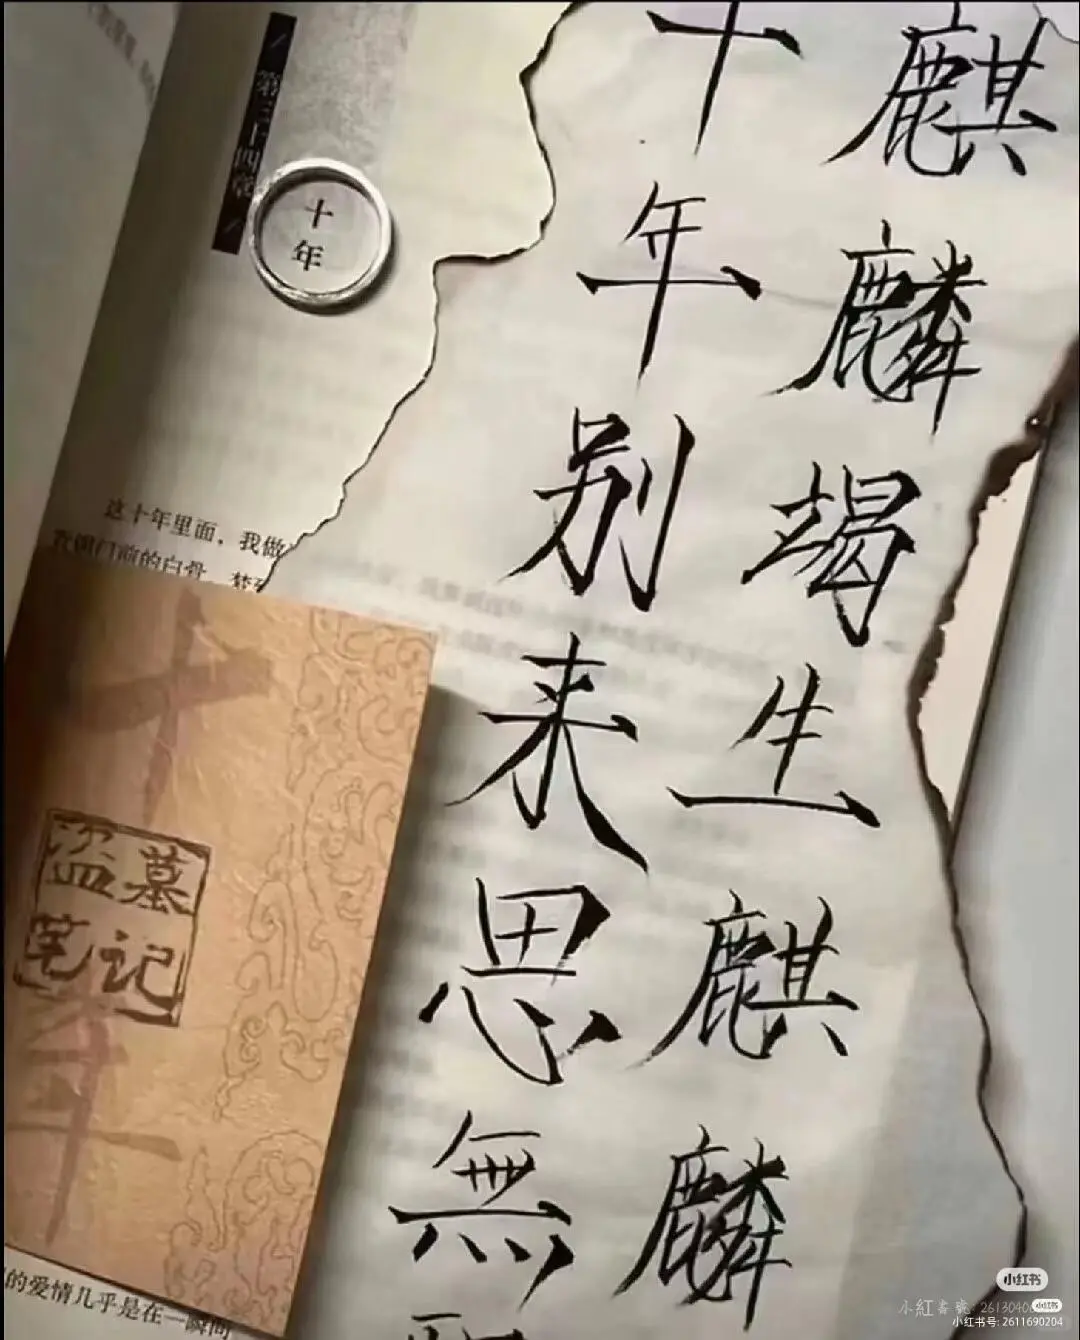 麒麟竭生麒麟
十年别来思無
第三十四章
十年
这十年里面，我做
青铜门前的白骨，梦到
盗墓
笔记
十年
的爱情几乎是在一瞬间
小红书
小紅書號: 26130406
小红书
小红书号: 2611690204